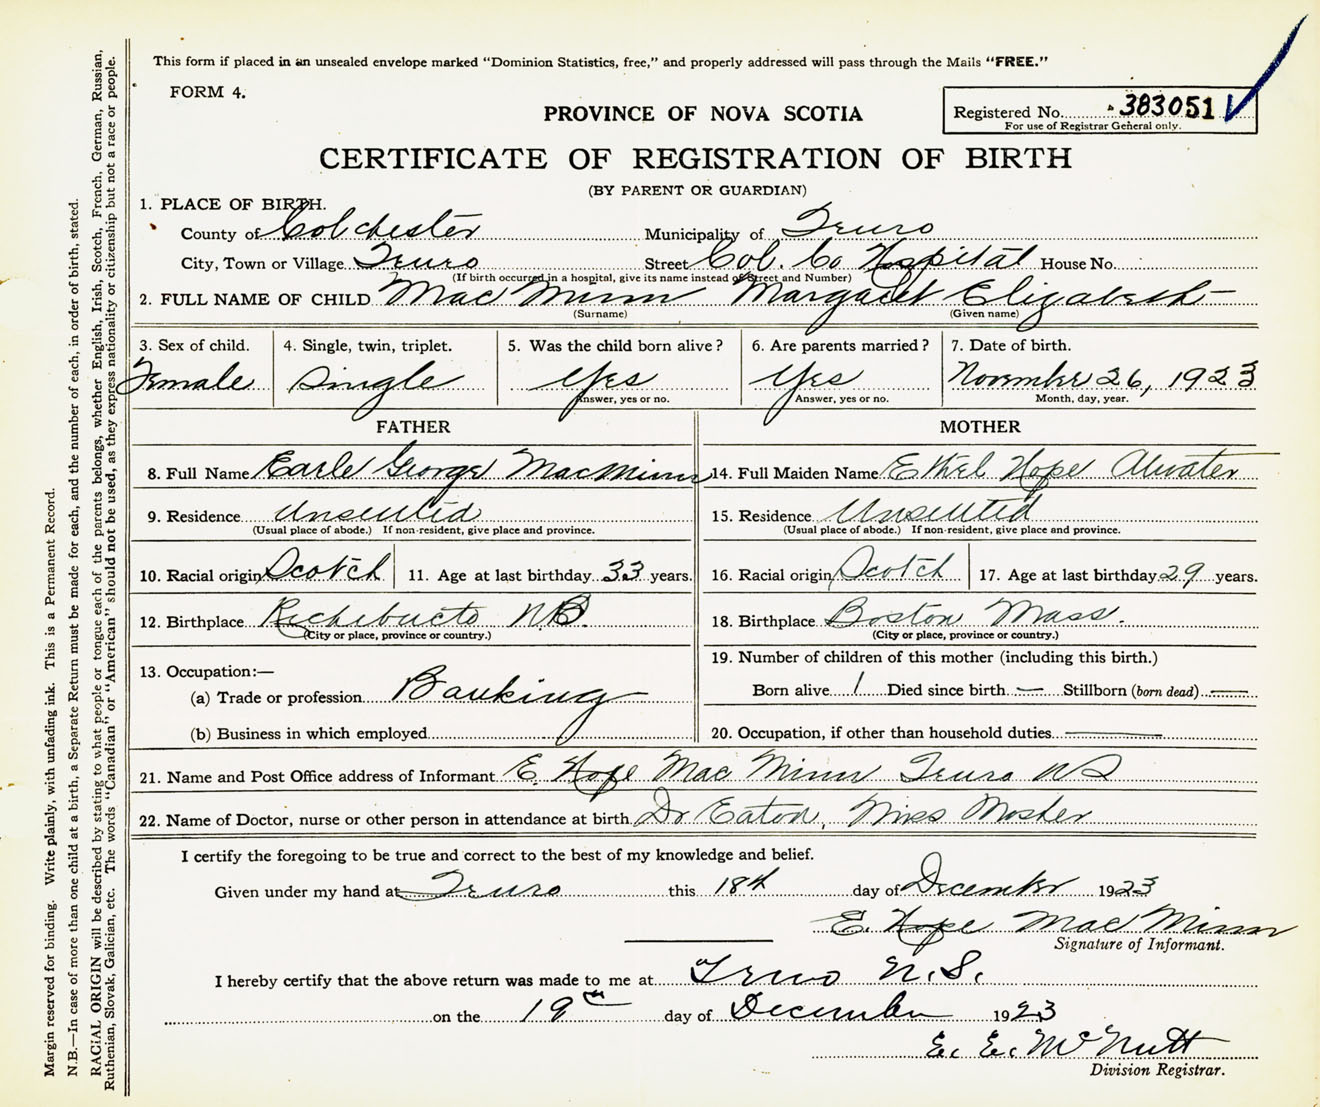 This form if placed in an unsealed envelope marked “Dominion Statistics, free,” and properly addressed will pass through the Mails “FREE.”
FORM 4.
PROVINCE OF NOVA SCOTIA
Registered No. 383051
For use of Registrar General only.
CERTIFICATE OF REGISTRATION OF BIRTH
(BY PARENT OR GUARDIAN)
1. PLACE OF BIRTH.
County of Colchester Municipality of Truro
City, Town or Village Truro Street Col. Co Hospital House No.
(If birth occurred in a hospital, give its name instead of Street and Number)
2. FULL NAME OF CHILD MacMinn Margaret Elizabeth
(Surname) (Given name)
3. Sex of child. 4. Single, twin, triplet. 5. Was the child born alive? 6. Are parents married? 7. Date of birth.
Female Single Yes Yes November 26, 1923
Answer, yes or no. Answer, yes or no. Month, day, year.
FATHER MOTHER
8. Full Name Earle George MacMinn 14. Full Maiden Name Ethel Hope Atwater
9. Residence Unsettled 15. Residence Unsettled
(Usual place of abode.) If non-resident, give place and province. (Usual place of abode.) If non-resident, give place and province.
10. Racial origin Scotch 11. Age at last birthday 33 years. 16. Racial origin Scotch 17. Age at last birthday 29 years.
12. Birthplace Richebucto N.B. 18. Birthplace Boston Mass.
(City or place, province or country.) (City or place, province or country.)
19. Number of children of this mother (including this birth.)
13. Occupation:—
(a) Trade or profession Banking Born alive 1 Died since birth — Stillborn (born dead) —
(b) Business in which employed 20. Occupation, if other than household duties —
21. Name and Post Office address of Informant E. Hope MacMinn Truro NS
22. Name of Doctor, nurse or other person in attendance at birth Dr Eaton, Miss Mosher
I certify the foregoing to be true and correct to the best of my knowledge and belief.
Given under my hand at Truro this 18th day of December 1923
E. Hope MacMinn
Signature of Informant.
I hereby certify that the above return was made to me at Truro N.S.
on the 19th day of December 1923
E. E. McNutt
Division Registrar.
Margin reserved for binding. Write plainly, with unfading ink. This is a Permanent Record.
N.B.—In case of more than one child at a birth, a Separate Return must be made for each, and the number of each, in order of birth, stated.
RACIAL ORIGIN will be described by stating to what people or tongue each of the parents belongs, whether English, Irish, Scotch, French, German, Russian,
Ruthenian, Slovak, Galician, etc. The words “Canadian” or “American” should not be used, as they express nationality or citizenship but not a race or people.